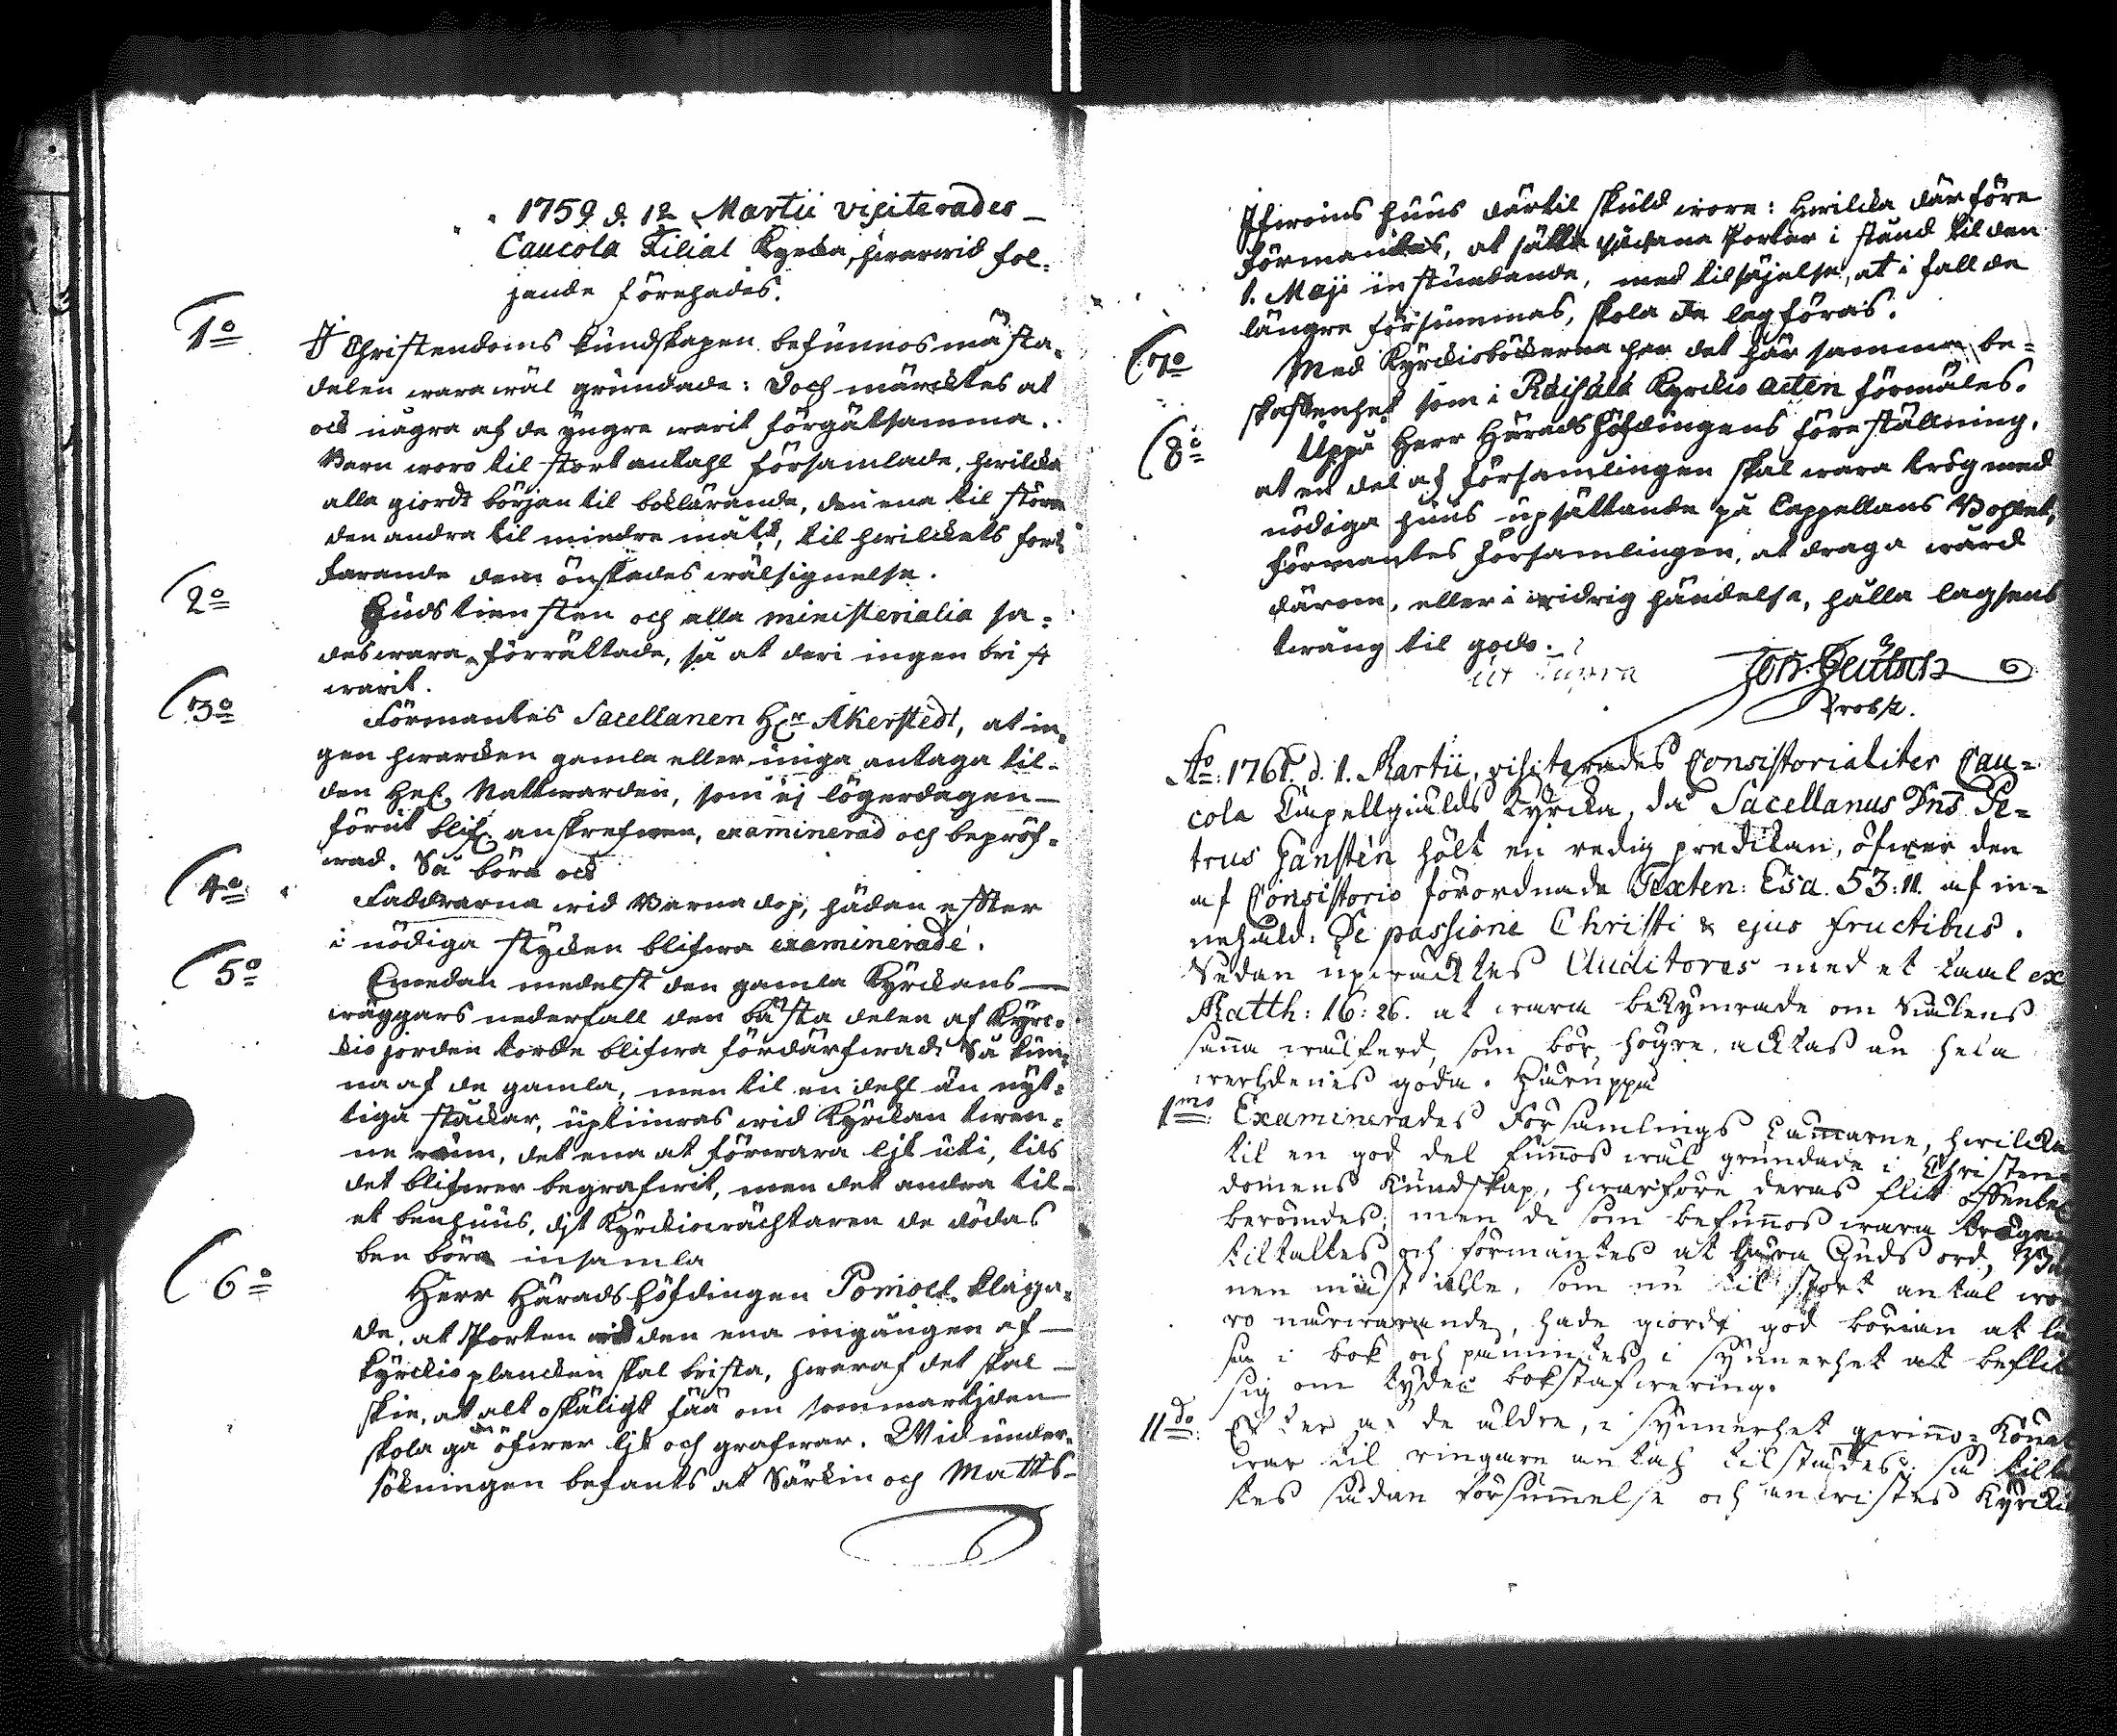 1759 d. 12 Martii visiterades
Caucola Filial Kyrcka, hwarwid föl=
jande förehades.
1o
I Christendoms kundskapen befunnos mästa=
delen wara wäl grundade: Doch märcktes at
ock några af de yngre warit förgätsamma.
Barn woro til stort antahl församlade, hwilcka
alla giordt början til boklärande, den ena til större
den andra til mindre mått, til hwilckets fort=
farande dem önskades wälsignelse.
2o
Gudstiensten och alla ministerialia sa=
des wara förrättade, så at deri ingen brist
warit.
3o
Förmantes Sacellanen Hr Åkerstedt, at in=
gen hwarcken gamla eller unga antaga til
den Hel. Nattwarden, som ej lögerdagen
förut blif. anskrefwen, examinerad och bepröf=
wad. Så böra ock
4o
Faddrarna wid Barna dop, hädan effter
i nödiga stycken blifwa examinerade.
5o
Emedan medelst den gamla Kyrckans
wäggars nederfall den bästa delen af Kyrc=
kiojorden torde blifwa fördärfwad, Så kun=
na af de gamla, men til en dehl än nyt=
tiga stockar, uptimras wid Kyrckan twen=
ne rum, det ena at förwara lijk uti, tils
det blifwer begrafwit, men det andra til
et benhuus, dijt Kyrckiowächtaren de dödas
ben böra insamla
6o
Herr Häradshöfdingen Pomoel. klaga=
de, at Porten wid den ena ingången af
Kyrckioplancken skal brista, hwaraf det skal
skie, at alt oskäligt fää om sommartijden
skola gå öfwer lijk och grafwar. Wid under=
sökningen befants at Särkin och Matts=
Ifwoins huus därtil skuld wore: hwilcka därföre
förmantes, at sätta sådana Portar i stånd til den
1. Maji instundande, med tilsäjelse, at i fall de
längre försummas, skola de lagföras.
7o
Med Kyrckioböckerna har det här samma be=
skaffenhet som i Räisälä Kyrckio acten förmäles.
8o
Uppå Herr Häradshöfdingens föreställning,
at en del af församlingen skal wara trög med
nödiga huus upsättande på Cappellans Bohlet,
förmantes församlingen, at draga wård
därom, eller i widrig händelse, hålla lagsens
twång til godo.
ut supra
Prob:t.
Ao: 1761. d. 1. Martii, visiterades Consistorialiter Cau=
cola Capellgiälds Kyrcka, då Sacellanus Dns Pe=
trus Hänstén hölt en redig predikan, öfwer den
af Consistorio förordnade Texten: Esa. 53:11. af in=
nehåld: De passione Christi & ejus fructibus.
Sedan upwäcktes Auditores med et taal ex
Matth: 16: 26. at wara bekymrade om Siälens
sanna wälferd, som bör högre acktas än hela
werldenes goda. Häruppå
1mo
Examinerades Församlings Lammerne, hwilcka
til en god del funnos wäl grundade i Christen=
domens Kundskap, hwarföre deras flit offentel
berömdes; men de som befunnos wara tröga
tiltaltes och förmantes at lära Guds ord, Ba
nen mäst alle, som nu til stort antal wo
ro närwarande, hade giordt god början at lä
sa i bok och påmintes i synnerhet at beflit
sig om tydelig bokstafwering.
IIdo
Efter at de äldre, i synnerhet qwinno-Könet
war til ringare antal tilstädes; så tilta
tes sådan försummelse och anwistes Kyrcki